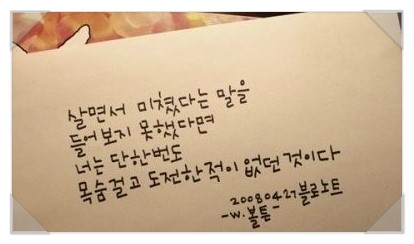 살면서 미쳤다는 말을
들어보지 못했다면
너는 단한번도
목숨걸고 도전한적이 없던것이다
20080427 블로노트
-w. 볼통-